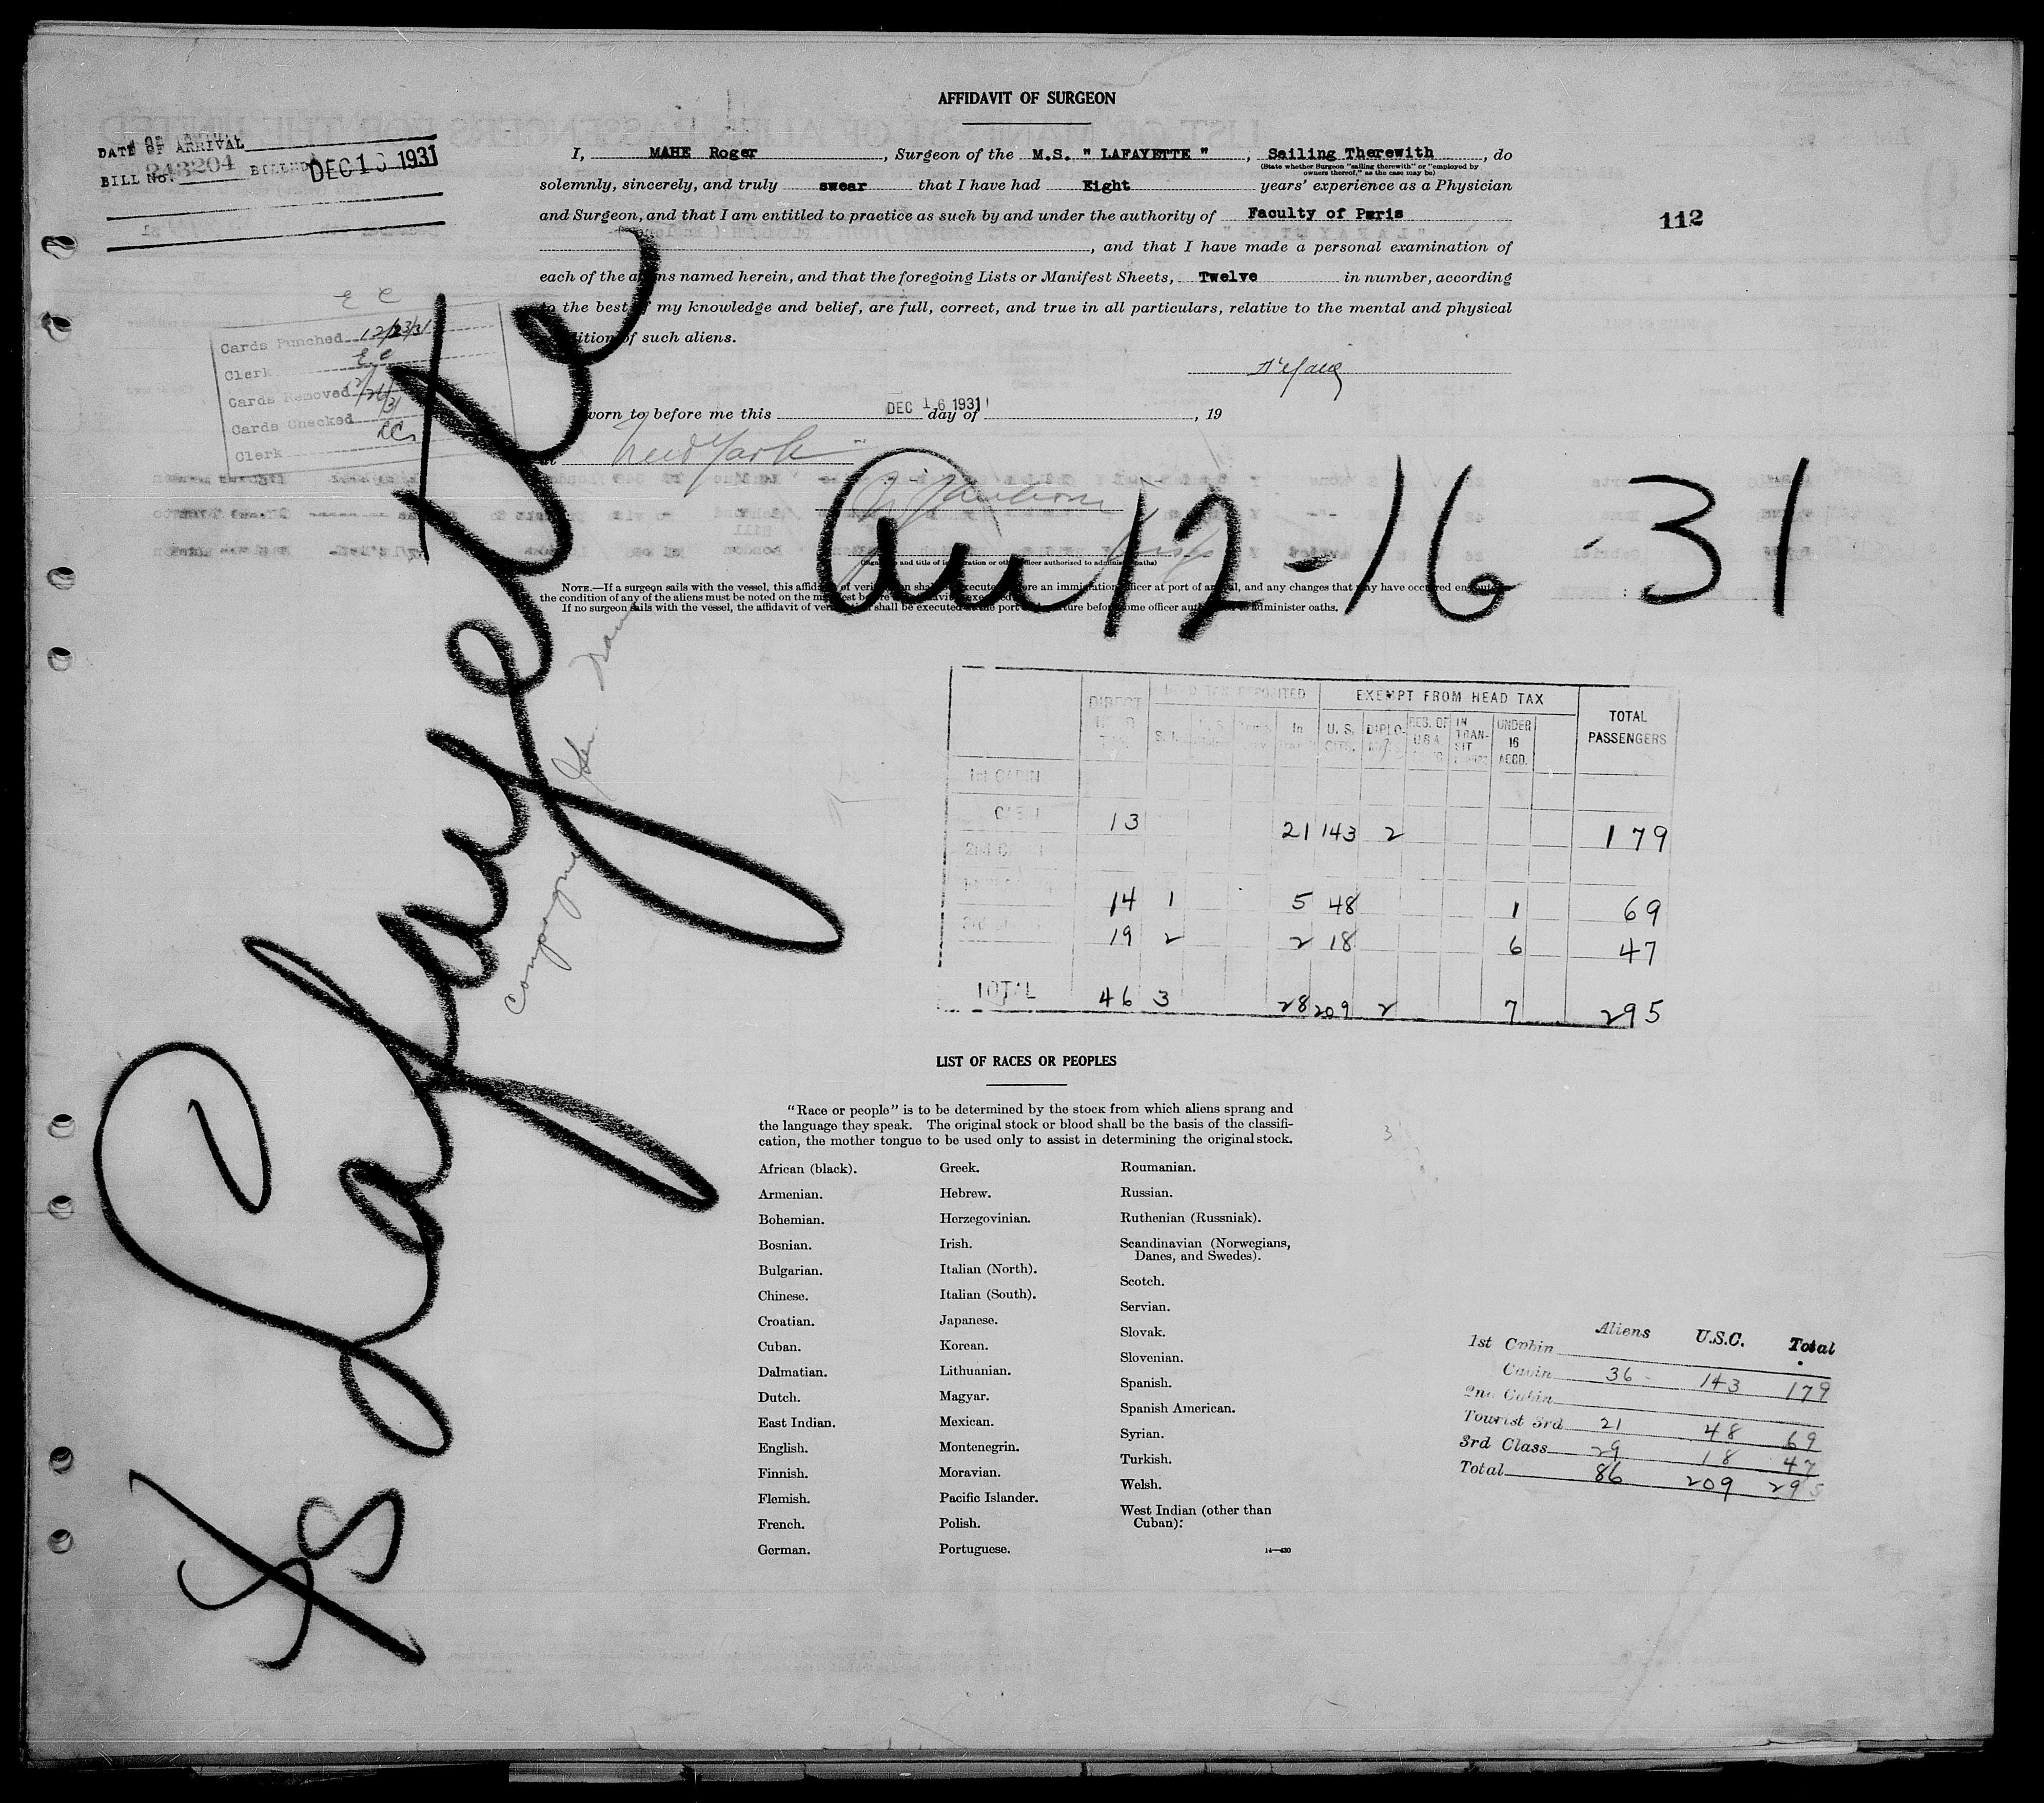 AFFIDAVIT OF SURGEON
DATE OF ARRIVAL
BILL No. 243204 BILLED DEC 16 1931
I, MAHE Roger, Surgeon of the M.S. " LAFAYETTE ", Sailing Therewith, do
(State whether Surgeon "sailing therewith" or "employed by
owners thereof," as the case may be)
solemnly, sincerely, and truly swear that I have had Eight years' experience as a Physician
and Surgeon, and that I am entitled to practice as such by and under the authority of Faculty of Paris
112
, and that I have made a personal examination of
each of the aliens named herein, and that the foregoing Lists or Manifest Sheets, Twelve in number, according
to the best of my knowledge and belief, are full, correct, and true in all particulars, relative to the mental and physical
condition of such aliens.
E C
Cards Punched 12/23/31
Clerk E C
Cards Removed 12/26/31
Cards Checked
Clerk
Sworn to before me this DEC 16 1931 day of , 19
at New York
12-16-31
(Signature and title of immigration or other officer authorized to administer oaths)
NOTE.—If a surgeon sails with the vessel, this affidavit of verification shall be executed before an immigration officer at port of arrival, and any changes that may have occurred en route in
the condition of any of the aliens must be noted on the manifest before the affidavit is executed.
If no surgeon sails with the vessel, the affidavit of verification shall be executed at the port of departure before some officer authorized to administer oaths.
SS Lafayette
Compagnie Gen Trans
DIRECT HEAD TAX HEAD TAX DEPOSITED EXEMPT FROM HEAD TAX TOTAL PASSENGERS
S. I. In Transit U. S. CITS. DIPLO- MATS RES. OF U.S.A. IN TRAN- SIT UNDER 16 ACCD.
1st CABIN
CABIN 13 21 143 2 179
2nd CABIN
14 1 5 48 1 69
19 2 2 18 6 47
TOTAL 46 3 28 209 2 7 295
LIST OF RACES OR PEOPLES
"Race or people" is to be determined by the stock from which aliens sprang and
the language they speak. The original stock or blood shall be the basis of the classifi-
cation, the mother tongue to be used only to assist in determining the original stock.
African (black).
Armenian.
Bohemian.
Bosnian.
Bulgarian.
Chinese.
Croatian.
Cuban.
Dalmatian.
Dutch.
East Indian.
English.
Finnish.
Flemish.
French.
German.
Greek.
Hebrew.
Herzegovinian.
Irish.
Italian (North).
Italian (South).
Japanese.
Korean.
Lithuanian.
Magyar.
Mexican.
Montenegrin.
Moravian.
Pacific Islander.
Polish.
Portuguese.
Roumanian.
Russian.
Ruthenian (Russniak).
Scandinavian (Norwegians,
Danes, and Swedes).
Scotch.
Servian.
Slovak.
Slovenian.
Spanish.
Spanish American.
Syrian.
Turkish.
Welsh.
West Indian (other than
Cuban).
14—430
Aliens U.S.C. Total
1st Cabin
Cabin 36 143 179
2nd Cabin
Tourist 3rd 21 48 69
3rd Class 29 18 47
Total 86 209 295